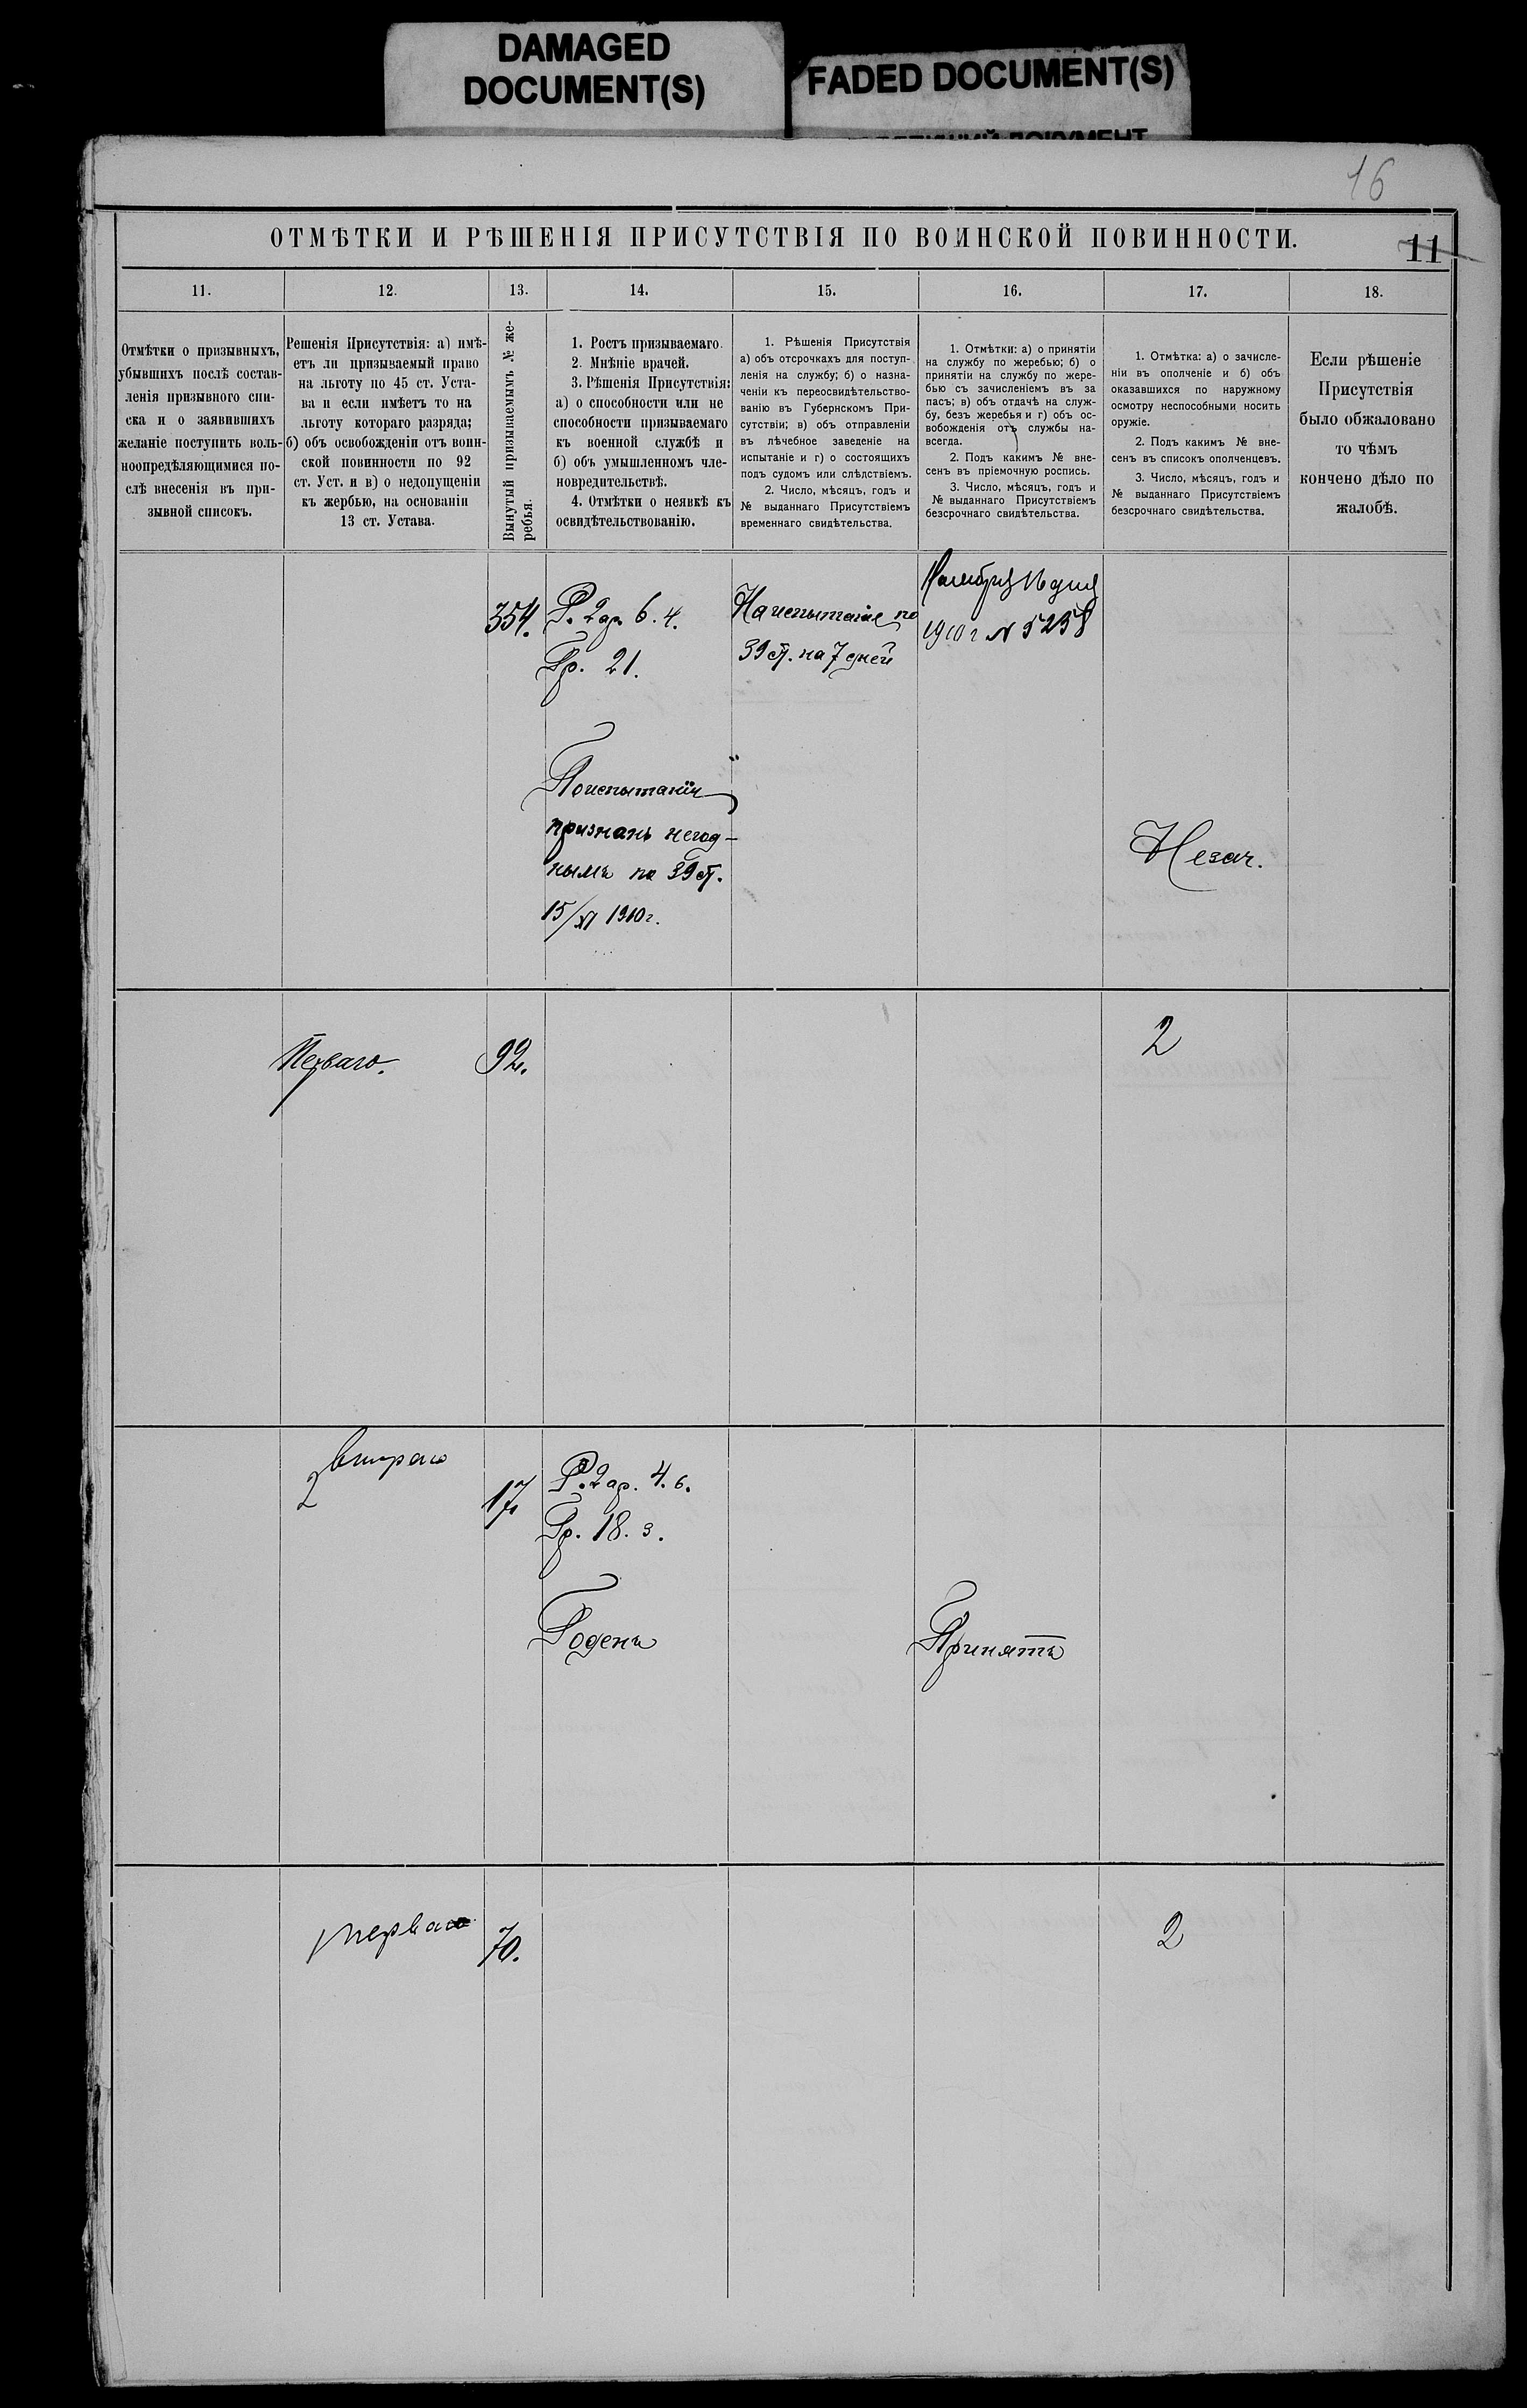 DAMAGED
DOCUMENT(S)
FADED DOCUMENT(S)
16
ОТМѢТКИ И РѢШЕНІЯ ПРИСУТСТВІЯ ПО ВОИНСКОЙ ПОВИННОСТИ.
11
11.
12.
13.
14.
15.
16.
17.
18.
Отмѣтки о призывныхъ,
убывшихъ послѣ состав-
ленія призывного спи-
ска и о заявившихъ
желаніе поступить воль-
ноопредѣляющимися по-
слѣ внесенія въ при-
зывной списокъ.
Решенія Присутствія: а) имѣ-
етъ ли призываемый право
на льготу по 45 ст. Уста-
ва и если имѣетъ то на
льготу котораго разряда;
б) объ освобожденіи отъ воин-
ской повинности по 92
ст. Уст. и в) о недопущеніи
къ жербью, на основаніи
13 ст. Устава.
Вынутый призываемымъ № же-
ребья.
1. Ростъ призываемаго.
2. Мнѣніе врачей.
3. Рѣшенія Присутствія:
а) о способности или не
способности призываемаго
къ военной службѣ и
б) объ умышленномъ чле-
новредительствѣ.
4. Отмѣтки о неявкѣ къ
освидѣтельствованію.
1. Рѣшенія Присутствія
а) объ отсрочкахъ для поступ-
ленія на службу; б) о назна-
ченіи къ переосвидѣтельство-
ванію въ Губернскомъ При-
сутствіи; в) объ отправленіи
въ лѣчебное заведеніе на
испытаніе и г) о состоящихъ
подъ судомъ или слѣдствіемъ.
2. Число, мѣсяцъ, годъ и
№ выданнаго Присутствіемъ
временнаго свидѣтельства.
1. Отмѣтки: а) о принятіи
на службу по жеребью; б) о
принятіи на службу по жере-
бью съ зачисленіемъ въ за
пасъ; в) объ отдачѣ на служ-
бу, безъ жеребья и г) объ ос-
вобожденія отъ службы на-
всегда.
2. Подъ какимъ № вне-
сенъ въ пріемочную роспись.
3. Число, мѣсяцъ, годъ и
№ выданнаго Присутствіемъ
безсрочнаго свидѣтельства.
1. Отмѣтка: а) о зачисле-
ніи въ ополченіе и б) объ
оказавшихся по наружному
осмотру неспособными носить
оружіе.
2. Подъ какимъ № вне-
сенъ въ списокъ ополченцевъ.
3. Число, мѣсяцъ, годъ и
№ выданнаго Присутствіемъ
безсрочнаго свидѣтельства.
Если рѣшеніе
Присутствія
было обжаловано
то чѣмъ
кончено дѣло по
жалобѣ.
354.
Р. 2 ар. 6. ч.
Гр. 21.
На испытаніе по
39 ст. на 7 дней
Ноября 16 дня
1910 г № 5258
По испытаніи
признанъ негод-
нымъ по 39 ст.
15/XI 1910 г.
Незач.
Перваго.
92.
2
второго
2
17
Р. 2 ар. 4. в.
Гр. 18. з.
Годенъ
Принятъ
перваго
70.
2